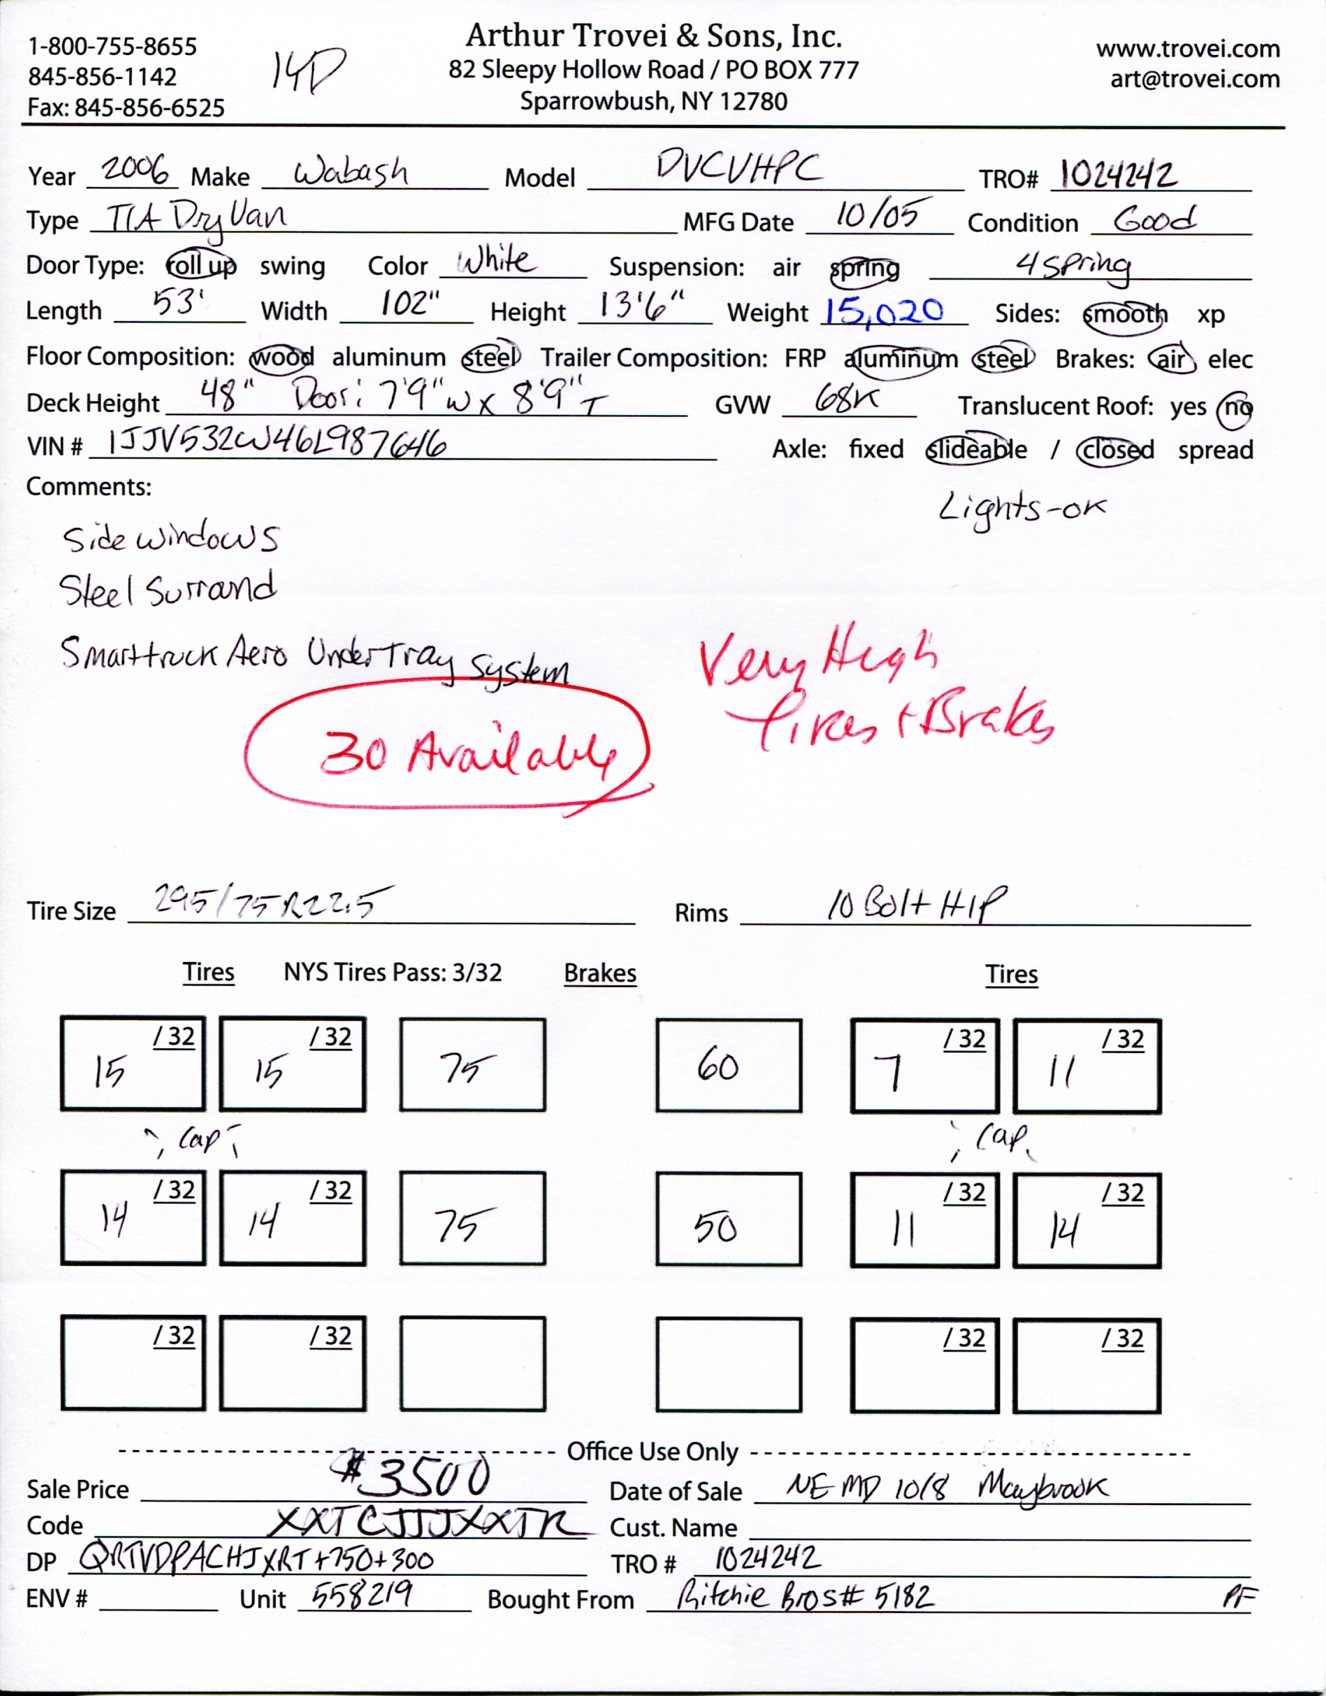 1-800-755-8655
845-856-1142
Fax: 845-856-6525
14D
Arthur Trovei & Sons, Inc.
82 Sleepy Hollow Road / PO BOX 777
Sparrowbush, NY 12780
www.trovei.com
art@trovei.com
Year 2006 Make Wabash Model DVCVHPC TRO# 1024242
Type T/A Dry Van MFG Date 10/05 Condition Good
Door Type: roll up swing Color White Suspension: air spring 4 spring
Length 53' Width 102" Height 13'6" Weight 15,020 Sides: smooth xp
Floor Composition: wood aluminum steel Trailer Composition: FRP aluminum steel Brakes: air elec
Deck Height 48" Door: 7'9"W x 8'9"T GVW 68K Translucent Roof: yes no
VIN # 1JJV532W46L987646 Axle: fixed slideable / closed spread
Comments:
Lights-ok
Side windows
Steel Surrand
Smarttruck Aero UnderTray System
Very High
Tires + Brakes
30 Available
Tire Size 295/75R22.5 Rims 10 Bolt H/P
Tires NYS Tires Pass: 3/32 Brakes Tires
15 /32 15 /32 75 60 7 /32 11 /32
Cap Cap
14 /32 14 /32 75 50 11 /32 14 /32
/32 /32 /32 /32
Office Use Only
Sale Price $3500 Date of Sale NE MD 10/8 Maybrook
Code XXTCJJJXXTR Cust. Name
DP QRTVDPACHJXRT+750+300 TRO # 1024242
ENV # Unit 558219 Bought From Ritchie Bros# 5182 PF